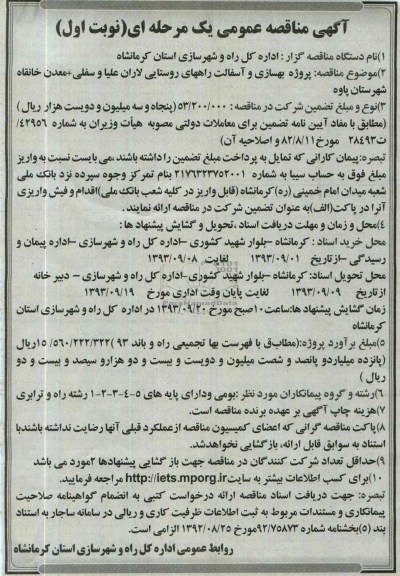 آگهی مناقصه عمومی یک مرحله ای(نوبت اول)
۱)نام دستگاه مناقصه گزار : اداره کل راه و شهرسازی استان کرمانشاه
۲)موضوع مناقصه: پروژه بهسازی و آسفالت راههای روستایی لاران علیا و سفلی+معدن خانقاه
شهرستان پاوه
۳)نوع و مبلغ تضمین شرکت در مناقصه : ۵۳/۲۰۰/۰۰۰ (پنجاه و سه میلیون و دویست هزار ریال )
(مطابق با مفاد آیین نامه تضمین برای معاملات دولتی مصوبه هیأت وزیران به شماره ۴۲۹۵۶/
ت۲۸۴۹۳ مورخ ۸۲/۸/۱۱ و اصلاحیه آن)
تبصره:پیمان کارانی که تمایل به پرداخت مبلغ تضمین را داشته باشند،می بایست نسبت به واریز
مبلغ فوق به حساب سیبا به شماره ۲۱۷۶۳۲۳۷۵۲۰۰۱ بنام تمرکز وجوه سپرده نزد بانک ملی
شعبه میدان امام خمینی (ره)کرمانشاه (قابل واریز در کلیه شعب بانک ملی)اقدام و فیش واریزی
آنرا در پاکت(الف)به عنوان تضمین شرکت در مناقصه ارائه نمایند .
۴)محل و زمان و مهلت دریافت اسناد ،تحویل و گشایش پیشنهاد ها :
محل خرید اسناد : کرمانشاه -بلوار شهید کشوری -اداره کل راه و شهرسازی -اداره پیمان و
رسیدگی -ازتاریخ ۱۳۹۳/۰۹/۰۱ لغایت ۱۳۹۳/۰۹/۰۸
محل تحویل اسناد: کرمانشاه -بلوار شهید کشوری-اداره کل راه و شهرسازی - دبیر خانه
ازتاریخ ۱۳۹۳/۰۹/۰۹ لغایت پایان وقت اداری مورخ ۱۳۹۳/۰۹/۱۹
زمان گشایش پیشنهاد ها:ساعت۱۰صبح مورخ ۱۳۹۳/۰۹/۲۰ در اداره کل راه و شهرسازی استان
کرمانشاه
۵)مبلغ برآورد پروژه:(مطابق با فهرست بها تجمیعی راه و باند ۹۳ )۱۵/۵۶۰/۲۲۲/۳۲۲ ریال
(پانزده میلیاردو پانصد و شصت میلیون و دویست و بیست و دو هزارو سیصد و بیست و دو
ریال )
۶)رشته و گروه پیمانکاران مورد نظر :بومی ودارای پایه های ۵-۴-۳-۲-۱ رشته راه و ترابری
۷)هزینه چاپ آگهی بر عهده برنده مناقصه است.
۸)پاکت مناقصه گرانی که اعضای کمیسیون مناقصه ازعملکرد قبلی آنها رضایت نداشته باشندبا
استناد به سوابق قابل ارائه، بازگشایی نخواهدشد.
۹)حداقل تعداد شرکت کنندگان در مناقصه جهت باز گشایی پیشنهادها ۲مورد می باشد
۱۰)برای کسب اطلاعات بیشتر به سایت http://iets.mporg.ir مراجعه فرمایید.
تبصره: جهت دریافت اسناد مناقصه ارائه درخواست کتبی به انضمام گواهینامه صلاحیت
پیمانکاری و مستندات مربوط به ثبت اطلاعات ظرفیت کاری و ریالی در سامانه ساجار به استناد
بند (۵)بخشنامه شماره ۹۲/۷۵۸۷۳مورخ ۱۳۹۲/۰۸/۲۵ الزامی است.
روابط عمومی اداره کل راه و شهرسازی استان کرمانشاه